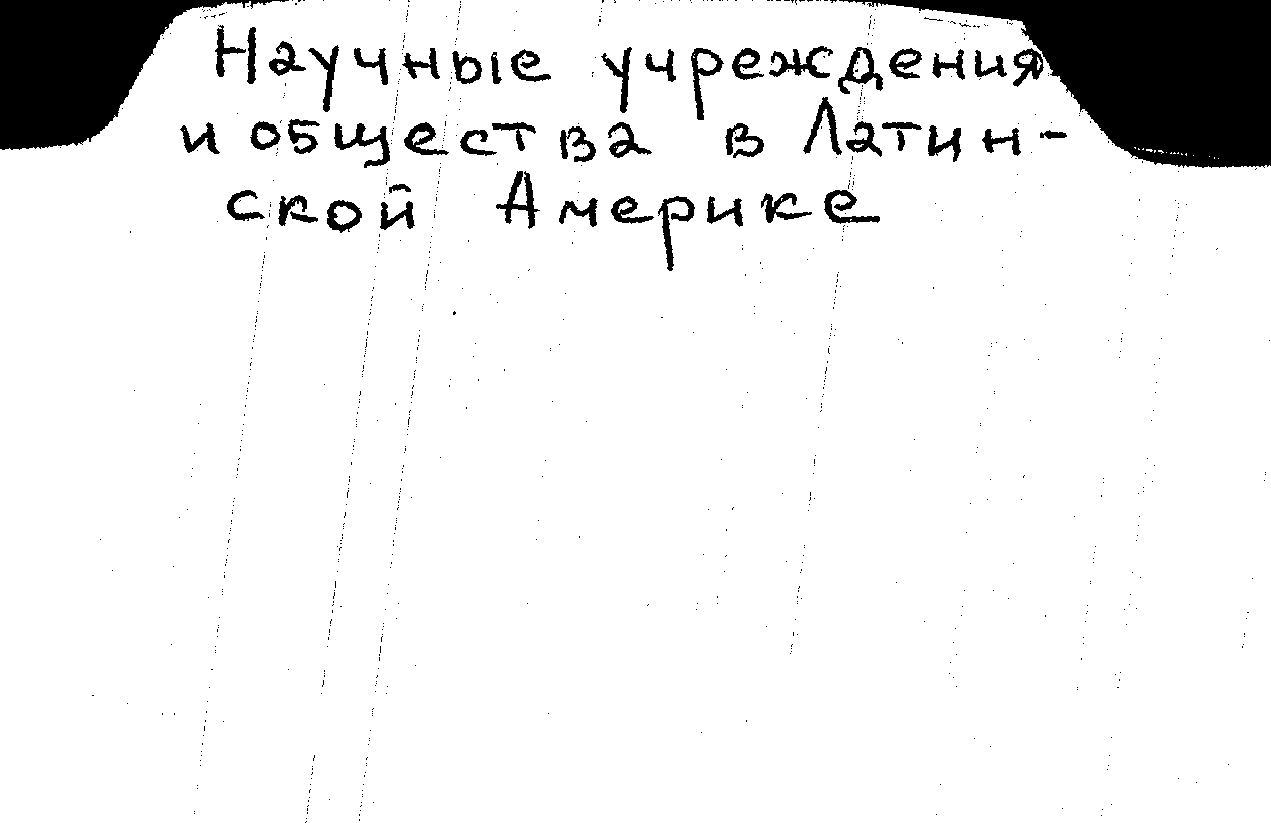 Научные учреждения
и общества в Латин-
ской Америке